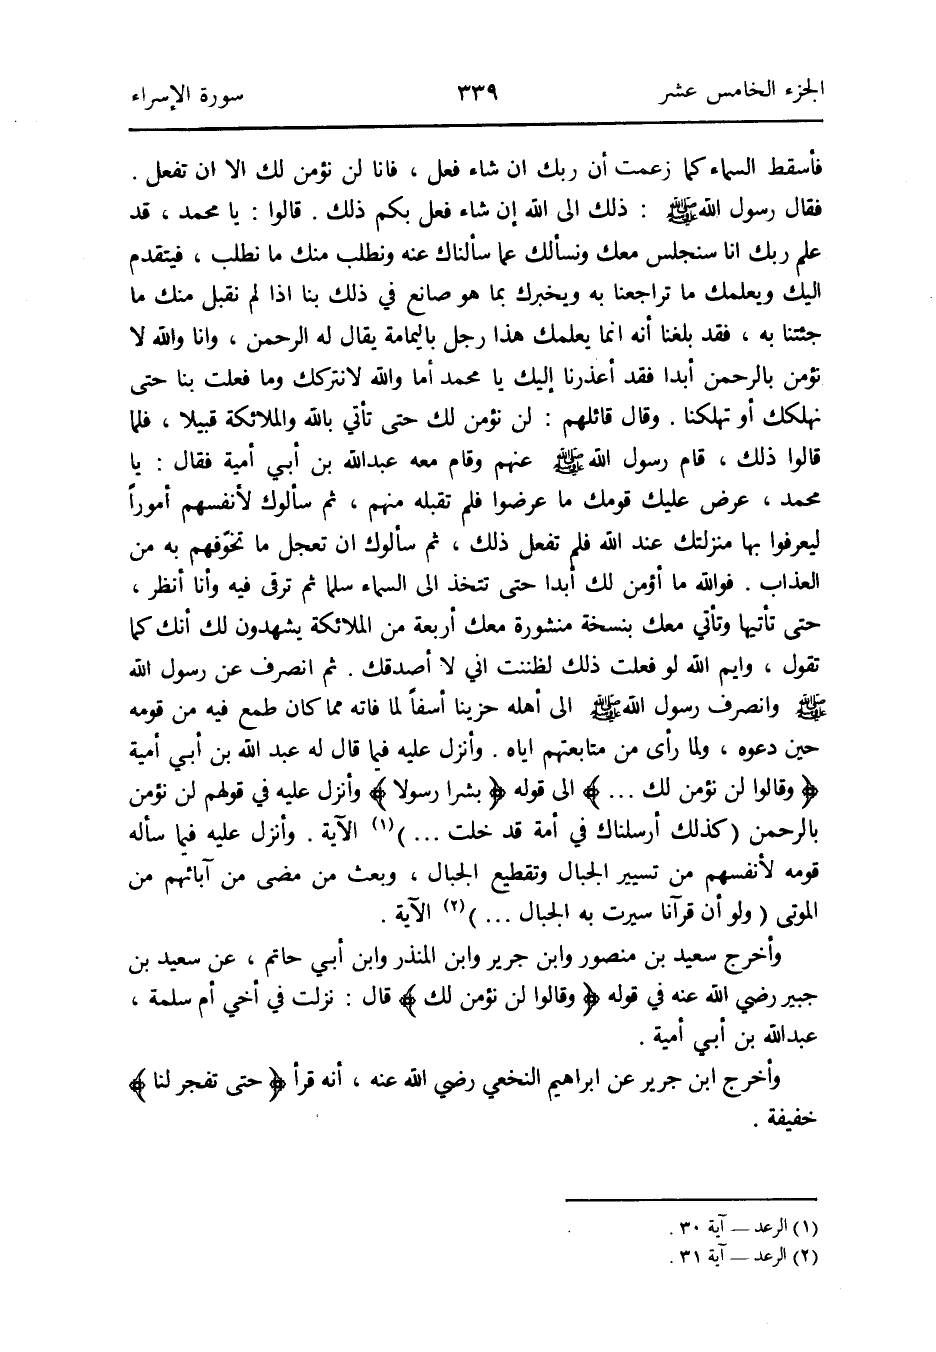 الجزء الخامس عشر ٣٣٩ سورة الإسراء
فأسقط السماء كما زعمت أن ربك ان شاء فعل ، فانا لن نؤمن لك الا ان تفعل .
فقال رسول الله ﷺ : ذلك الى الله إن شاء فعل بكم ذلك . قالوا : يا محمد ، قد
علم ربك انا سنجلس معك ونسألك عما سألناك عنه ونطلب منك ما نطلب ، فيتقدم
اليك ويعلمك ما تراجعنا به ويخبرك بما هو صانع في ذلك بنا اذا لم نقبل منك ما
جئتنا به ، فقد بلغنا أنه انما يعلمك هذا رجل باليمامة يقال له الرحمن ، وانا والله لا
نؤمن بالرحمن أبدا فقد أعذرنا إليك يا محمد أما والله لانتركك وما فعلت بنا حتى
نهلكك أو تهلكنا . وقال قائلهم : لن نؤمن لك حتى تأتي بالله والملائكة قبيلا ، فلما
قالوا ذلك ، قام رسول الله ﷺ عنهم وقام معه عبدالله بن أبي أمية فقال : يا
محمد ، عرض عليك قومك ما عرضوا فلم تقبله منهم ، ثم سألوك لأنفسهم أموراً
ليعرفوا بها منزلتك عند الله فلم تفعل ذلك ، ثم سألوك ان تعجل ما تخوّفهم به من
العذاب . فوالله ما أؤمن لك أبدا حتى تتخذ الى السماء سلما ثم ترقى فيه وأنا أنظر ،
حتى تأتيها وتأتي معك بنسخة منشورة معك أربعة من الملائكة يشهدون لك أنك كما
تقول ، وايم الله لو فعلت ذلك لظننت اني لا أصدقك . ثم انصرف عن رسول الله
ﷺ وانصرف رسول الله ﷺ الى أهله حزينا أسفاً لما فاته مما كان طمع فيه من قومه
حين دعوه ، ولما رأى من متابعتهم اياه . وأنزل عليه فيما قال له عبد الله بن أبي أمية
﴿ وقالوا لن نؤمن لك ... ﴾ الى قوله ﴿ بشرا رسولا ﴾ وأنزل عليه في قولهم لن نؤمن
بالرحمن ( كذلك أرسلناك في أمة قد خلت ... )(١) الآية . وأنزل عليه فيما سأله
قومه لأنفسهم من تسيير الجبال وتقطيع الجبال ، وبعث من مضى من آبائهم من
الموتى ( ولو أن قرآنا سيرت به الجبال ... )(٢) الآية .
وأخرج سعيد بن منصور وابن جرير وابن المنذر وابن أبي حاتم ، عن سعيد بن
جبير رضي الله عنه في قوله ﴿ وقالوا لن نؤمن لك ﴾ قال : نزلت في أخي أم سلمة ،
عبدالله بن أبي أمية .
وأخرج ابن جرير عن ابراهيم النخعي رضي الله عنه ، أنه قرأ ﴿ حتى تفجر لنا ﴾
خفيفة .
(١) الرعد – آية ٣٠ .
(٢) الرعد – آية ٣١ .